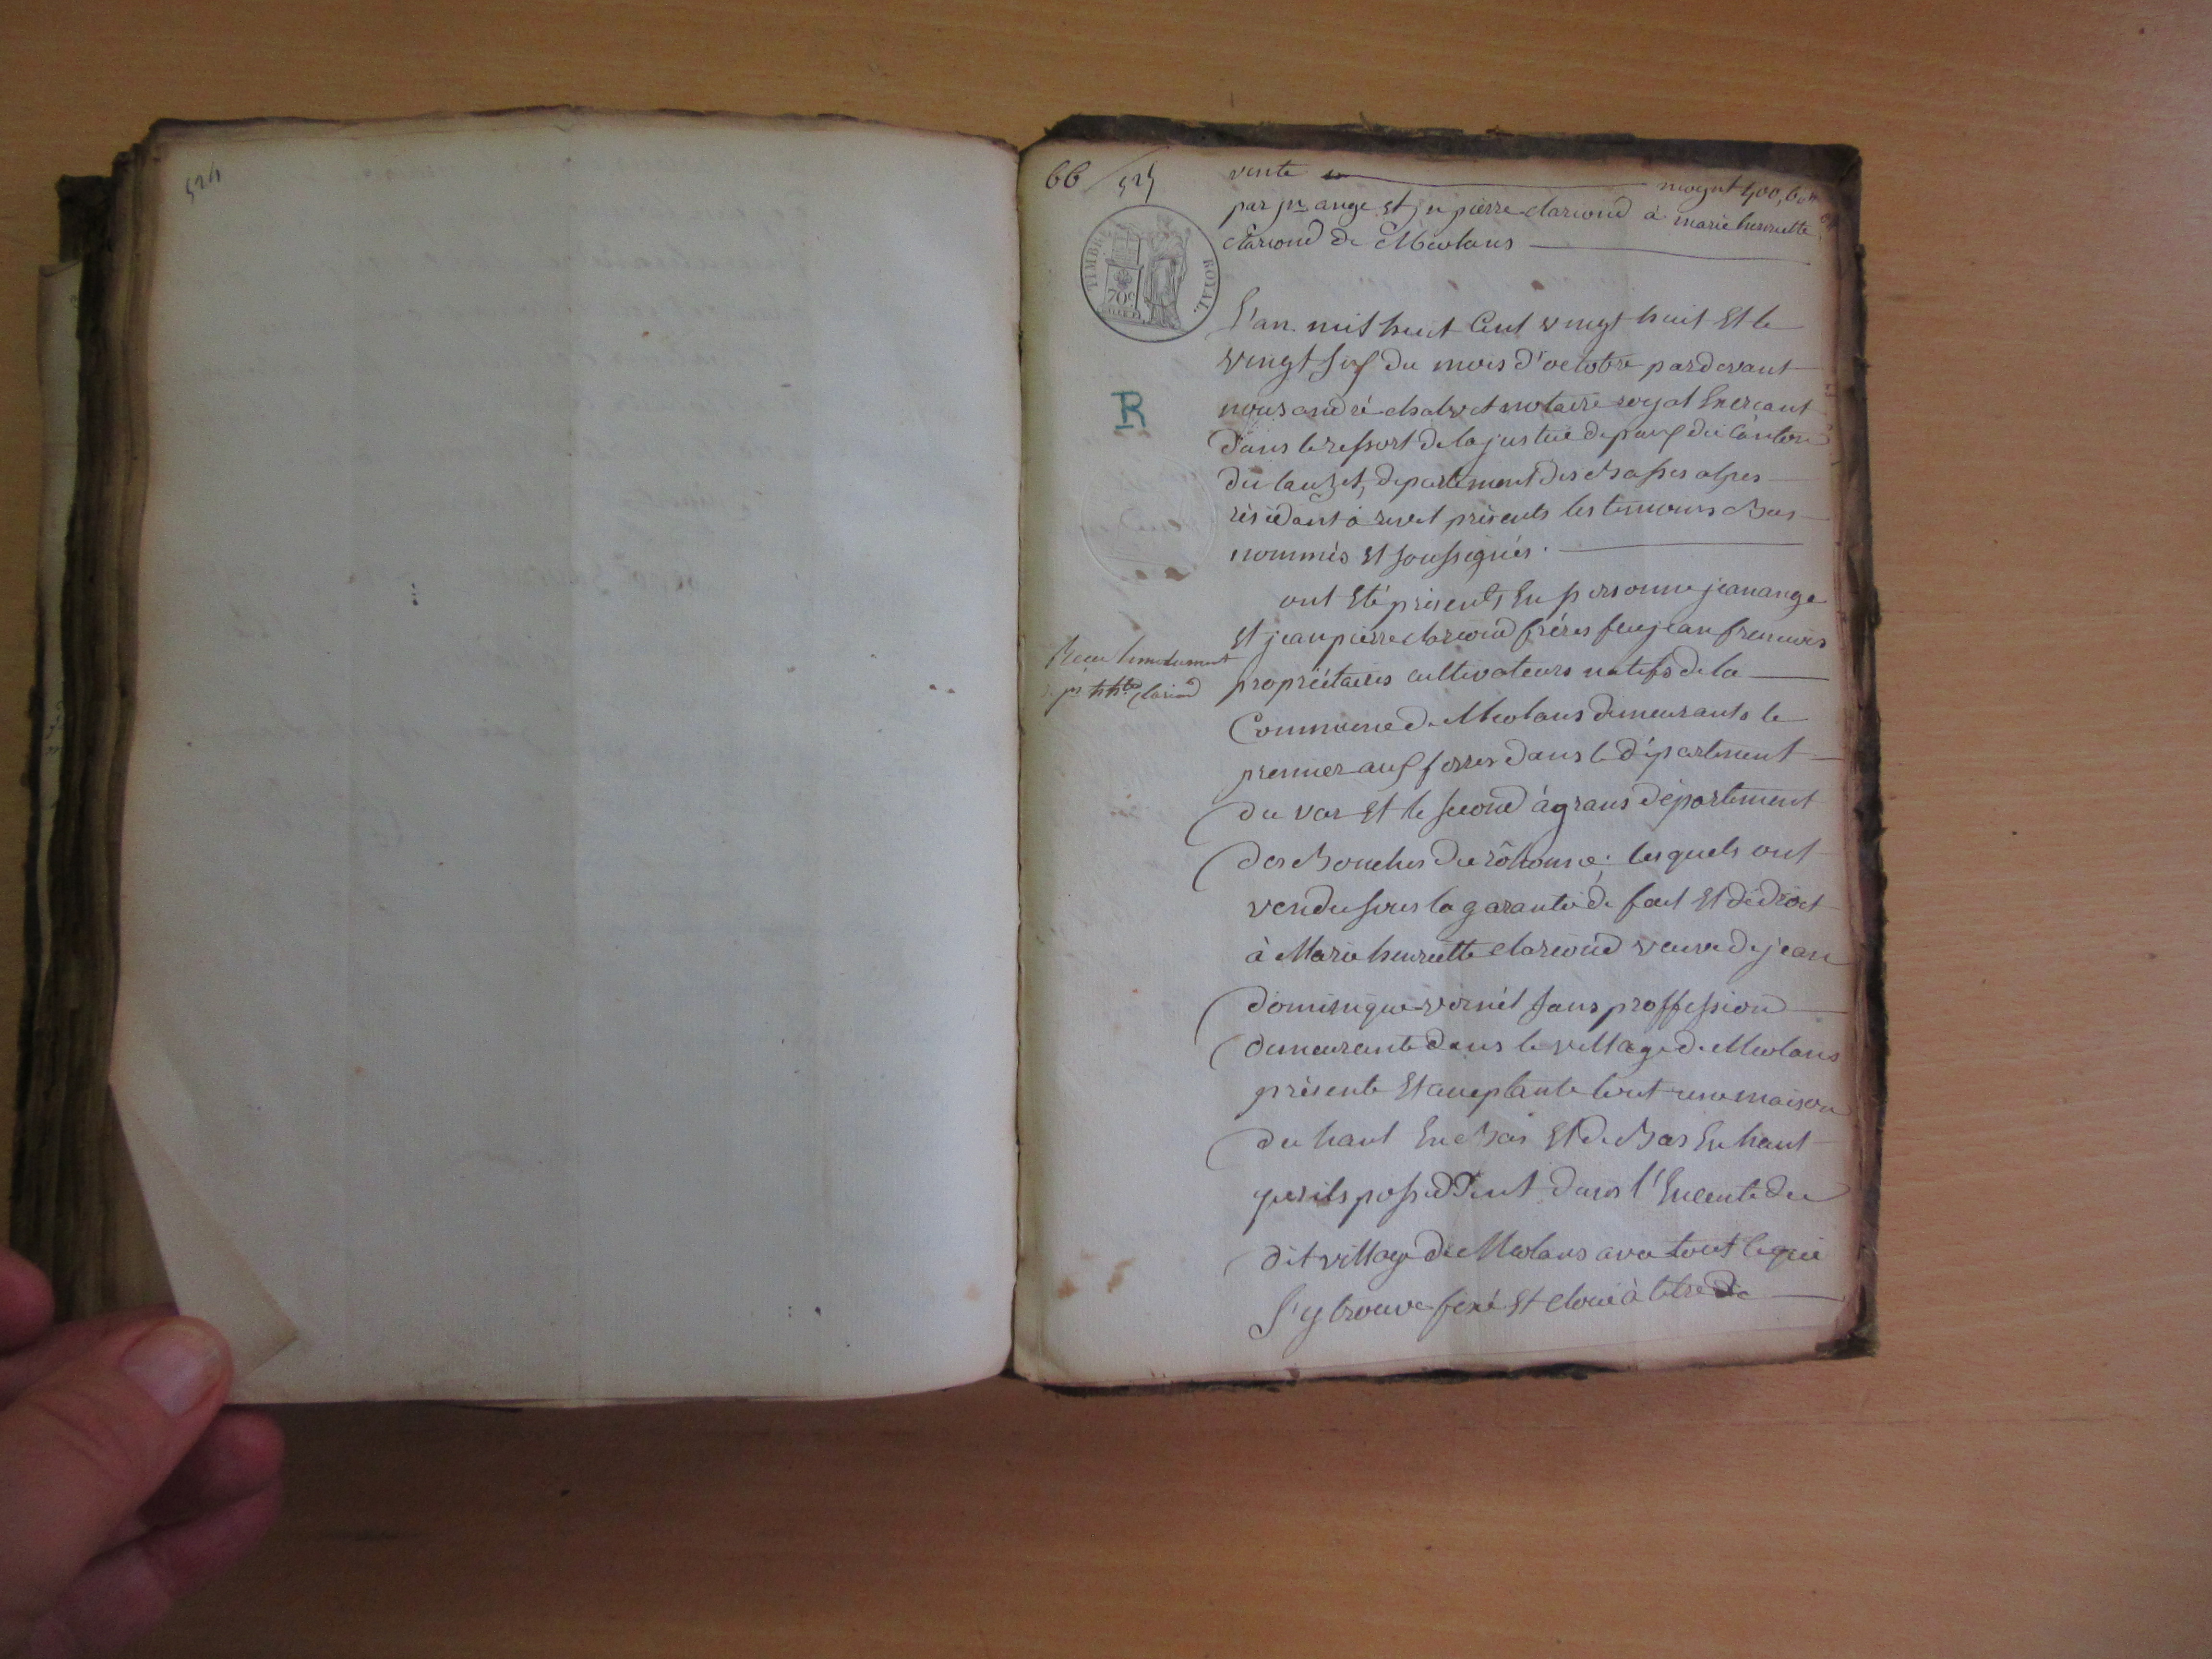 524
66 / 525
vente moyent 400, bon
par jn ange et jn pierre clariond à marie henriette
clariond de Meolans
TIMBRE ROYAL.
70c
R
L'an mil huit Cent vingt huit Et le
vingt six du mois d'octobre pardevant
nous andré chabret notaire royal Exercant
Dans le ressort de la justice de paix du Canton
du lauzet, departement des Basses alpes
résidant à revel présents les temoins Bas
nommés Et soussignés.
ont Eté présents En personne jean ange
Et jean pierre clariond frères feu jean francois
propriétaires cultivateurs natifs de la
Commune de Meolans demeurants le
premier aux ferres dans le département
du var Et le second à grans département
des Bouches du rôhonne; lesquels ont
vendu sous la garantie de fait Et de droit
à Marie henriette clariond veuve de jean
dominique vernet sans proffession
demeurante dans le village de Meolans
présente Et acceptante tout une maison
du haut En Bas Et de Bas En haut
qu'ils possèdent dans l'Enceinte du
dit village de Meolans avec tout ce qui
s'y trouve fixé Et cloué à titre de
clariond